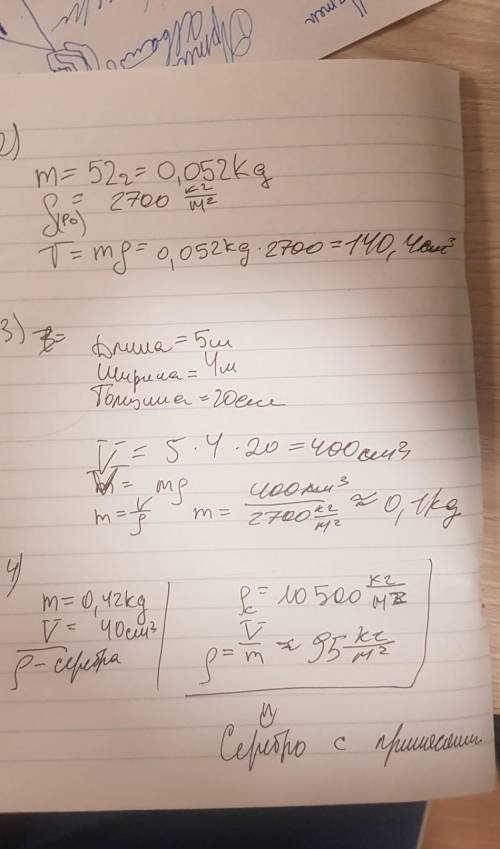 2)
m = 52г = 0,052kg
ρ(ро) = 2700 кг/м²
V = mρ = 0,052kg · 2700 = 140,4см³
3)
Длина = 5м
Ширина = 4м
Толщина = 20см
V = 5 · 4 · 20 = 400см³
m = mρ
m = V/ρ m = 400см³/2700 кг/м² ≈ 0,1kg
4)
m = 0,42kg
V = 40см³
ρ - серебра
ρc = 10500 кг/м
ρ = V/m ≈ 95 кг/м²
Серебро с примесями